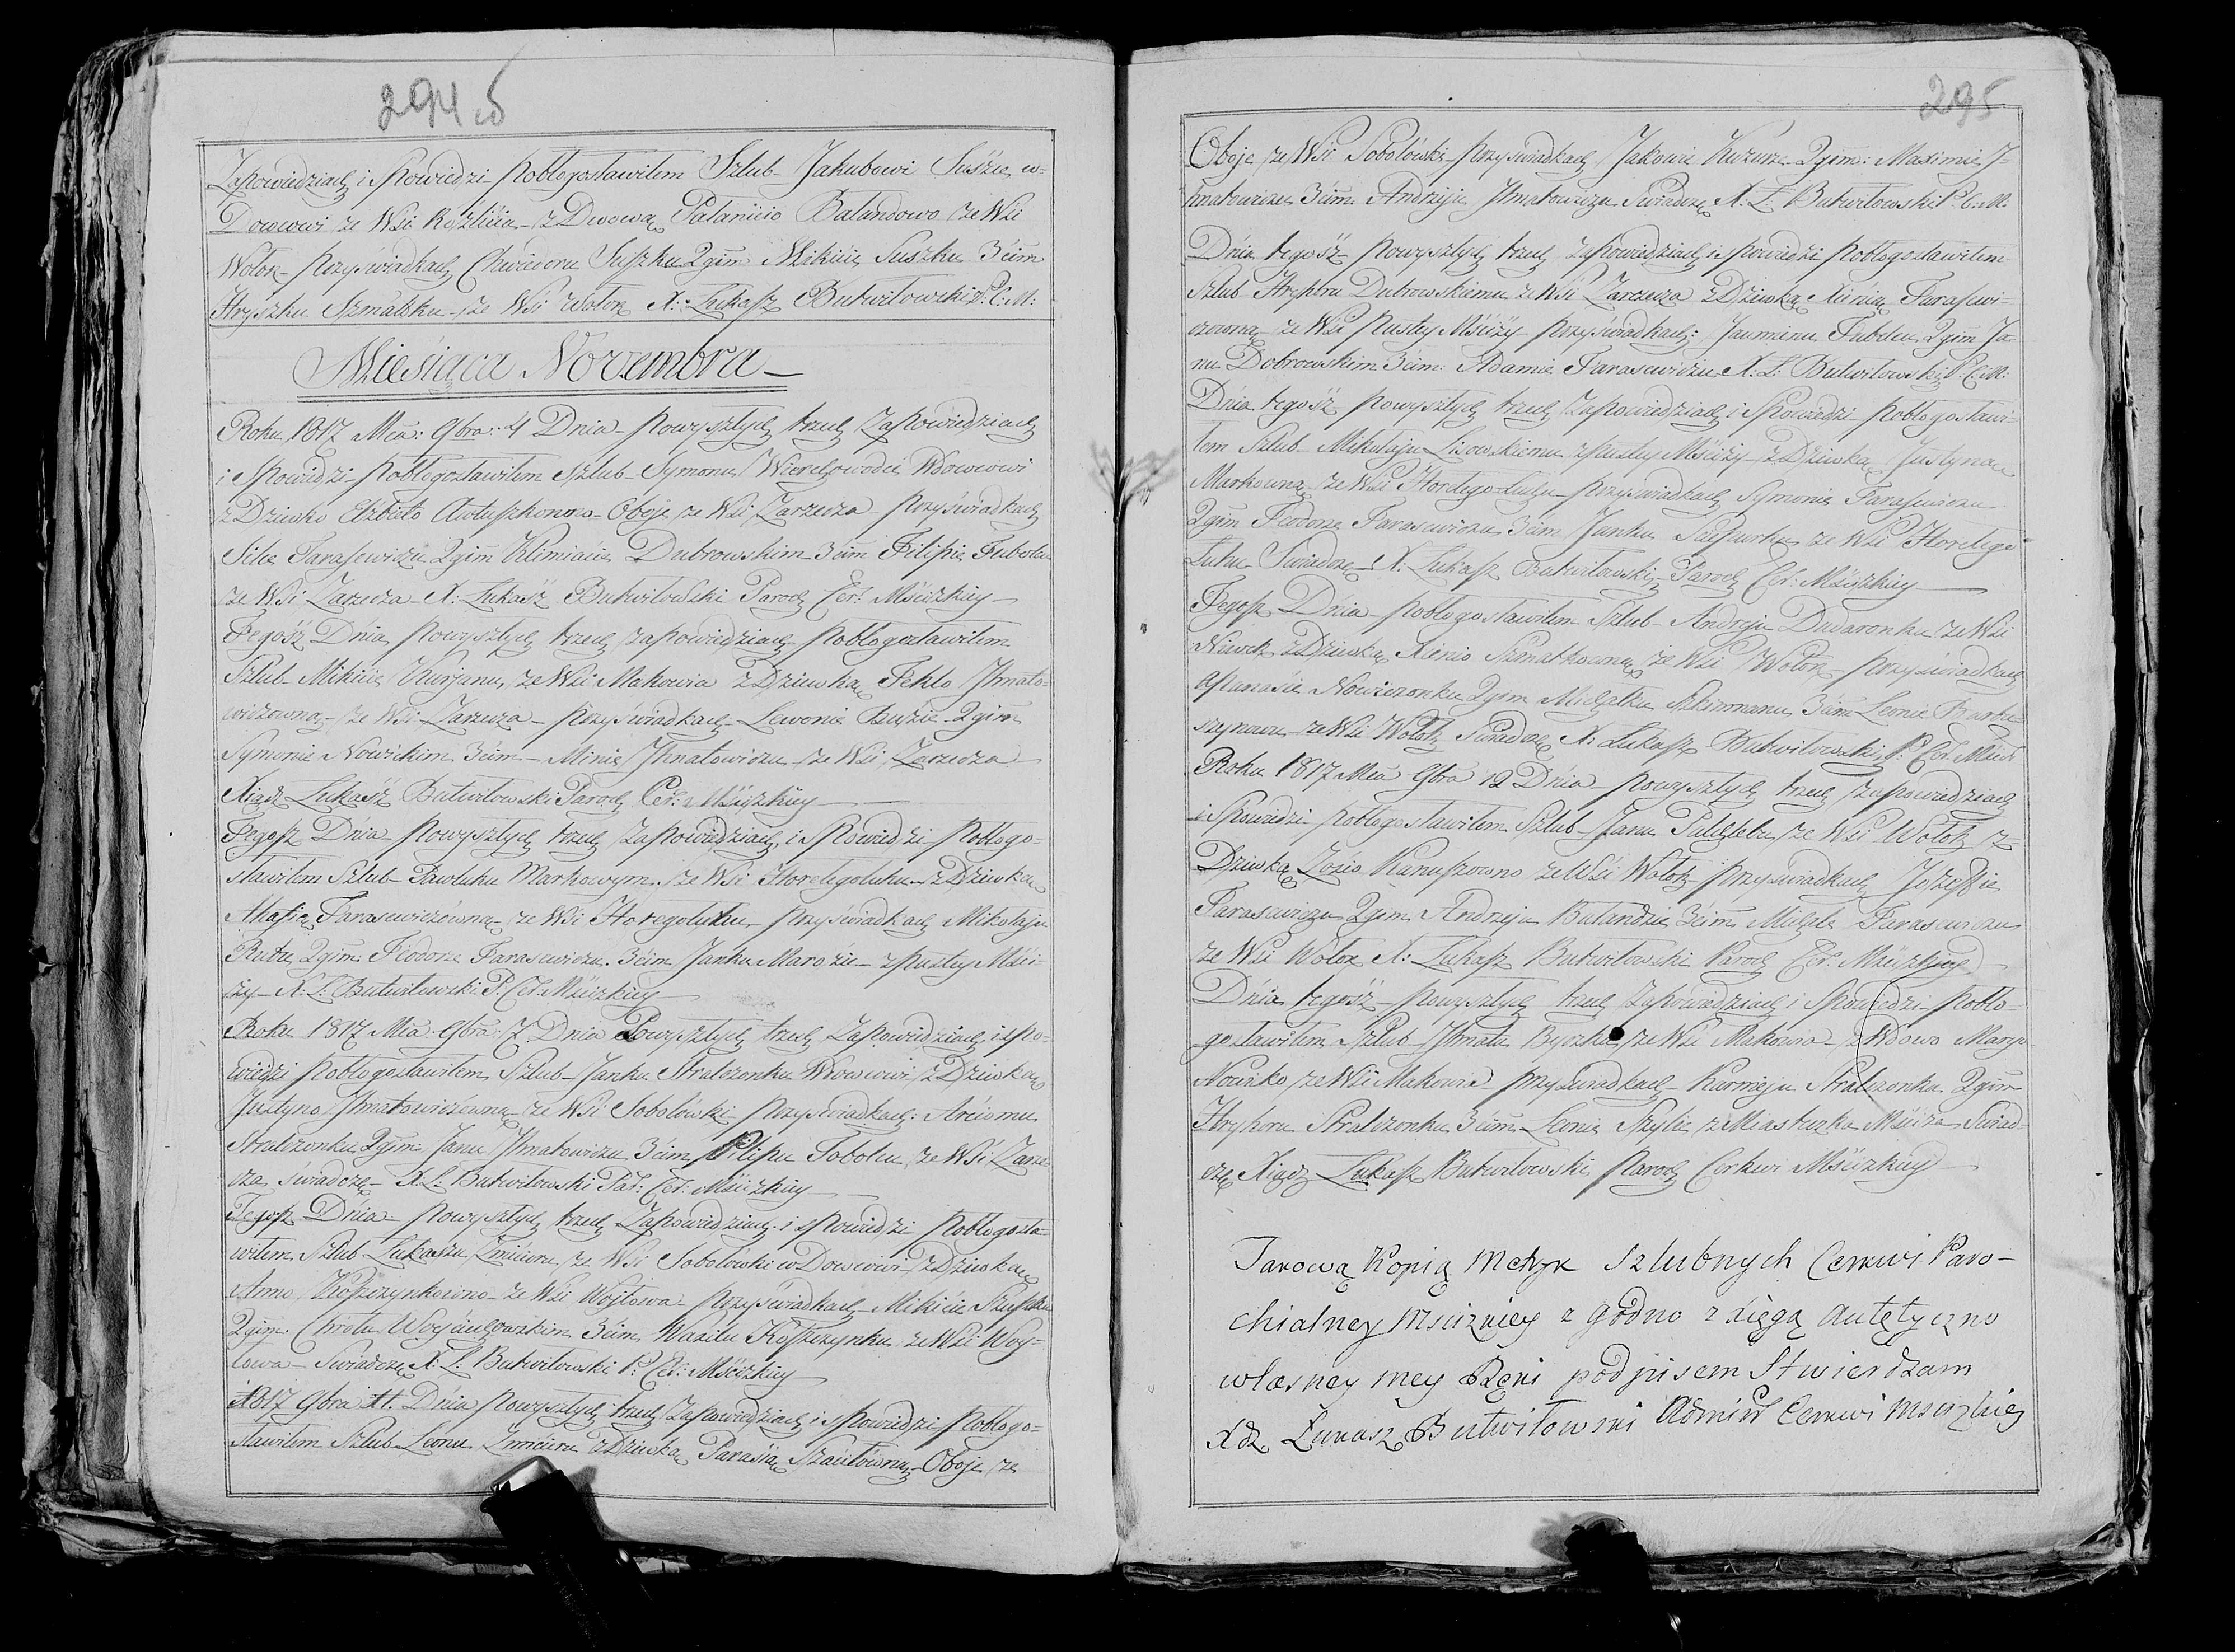 294 об
Zapowiedziach i Spowiedzi pobłogosławiłem Szlub Jakubowi Suszie w-
Dowcowi ze Wsi Kozlicia z Dwową Palaniio Balandowo ze Wsi
Wołok przy Swiadkach Chwiedoru Suszku 2gim Mikicie Suszku 3cim
Hryszku Szmatku ze Wsi Wołok X: Łukasz Butwiłowski P: C: M:
Miesiąca Novembra
Roku 1817 Mca: 9bra: 4 Dnia powyszłych trzech Zapowiedziach
i Spowiedzi pobłogosławiłem Szlub Symonu Wierchowodce Wdowcowi
z Dziewko Elżbieto Awłuszkowno Oboje ze Wsi Zarzecza przy Swiadkach
Silce Tarasewiczu 2gim Klimiacie Dubrowskim 3cim Filipie Tubolcu
ze Wsi Zarzecza X: Łukasz Butwiłowski Paroch Cer: Mścizkiey
Tegoż Dnia powyszłych trzech zapowiedziach pobłogosławiłem
Szlub Mikicie Kurjanu ze Wsi Makowia z Dziewką Teklo Ihnato-
wiczowną ze Wsi Zarzecza przy Swiadkach Lewonie Buzie 2gim
Symonie Nowickim 3cim Minie Ihnatowiczu ze Wsi Zarzecza
Xiądz Łukasz Butwiłowski Paroch Cer: Mścizkiey
Tegoż Dnia powyszłych trzech zapowiedziach i Spowiedzi pobłogo-
sławiłem Szlub Pawluku Markowym ze Wsi Horeligoluku z Dziewką
Ahafią Tarasewiczówną ze Wsi Horegoluku przy Swiadkach Mikołaju
Rutu 2gim Fiodorze Tarasewiczu 3cim Janku Marozie z pustey Mści-
ży X: Ł: Butwiłowski P: Cer: Mścizkiey
Roku 1817 Mca: 9bra: 7 Dnia Powyszłych trzech Zapowiedziach i spo-
wiedzi pobłogosławiłem Szlub Janku Stralczonku Wdowcowi z Dziewką
Justyno Ihnatowiczowną ze Wsi Sobolówki przy Swiadkach: Arciomu
Stralczonku 2gim Janu Ihnatowiczu 3cim Pilipu Tobolcu ze Wsi Zarze
cza swiadczę X: Ł: Butwiłowski Par: Cer: Mścizkiey
Tegoż Dnia powyszłych trzech Zapowiedziach i spowiedzi pobłogosła-
wiłem Szlub Łukaszu Zmicieru ze Wsi Sobolówki wDowcowi z Dziewką
Anno Koszczynkowno ze Wsi Wojtowa przy Swiadkach Mikicie Szuszku
2gim Chrolu Woyciuchowskim 3cim Wasilu Koszczynku ze Wsi Woy-
towa Swiadczę X: Ł: Butwiłowski P: Cer: Mścizkiey
1817 9bra 11 Dnia powyszłych trzech Zapowiedziach i spowiedzi pobłogo-
sławiłem Szlub Leonu Zmicieru z Dziewką Parasią Szautówną Oboje ze
295
Oboje ze Wsi Sobolówki przy swiadkach Jakowie Kuzurze 2gim: Maximie J-
hnatowiczu 3cim Andrzeju Ihnatowiczu Swiadczę X: Ł: Butwiłowski P: C: M:
Dnia tegoż powyszłych trzech zapowiedziach i spowiedzi pobłogosławiłem
Szlub Hryhoru Dubrowskiemu ze Wsi Zarzecza z Dziewką Xienią Tarasewi-
czowną ze Wsi Pustey Mściży przy swiadkach: Jauminu Tubolcu 2gim Ja-
nu Dobrowskim 3cim Adamie Tarasewiczu X: Ł: Butwiłowski P: C: M:
Dnia tegoż powyszłych trzech Zapowiedziach i Spowiedzi pobłogosławi-
łem Szlub Mikołaju Lisowskiemu z pustey Mściży z Dziewką Justyną
Markowną ze Wsi Horelego Ługu przy swiadkach Symonie Tarasewiczu
2gim Fiodorze Tarasewiczu 3cim Janku ze Wsi Horelego
Luku Swiadczę X: Łukasz Butwiłowski Paroch Cer: Mścizkiey
Tegoż Dnia pobłogosławiłem Szlub Andreju Dudaronku ze Wsi
Niwek z Dziewką Xienio Szmatkowną ze Wsi Wołok przy swiadkach
Apanasie Nowiczonku 2gim Michałku 3cim Leonie
ze Wsi Wołok Swiadczę X: Łukasz Butwiłowski P: Cer: Mści
Roku 1817 Mca 9bra 12 Dnia powyszłych trzech zapowiedziach
i Spowiedzi pobłogosławiłem Szlub Janu ze Wsi Wołok z
Dziewką Zosio Kanuszowno ze Wsi Wołok przy swiadkach Jozefie
Tarasewiczu 2gim Andreju Balandzie 3cim Michale Tarasewiczu
ze Wsi Wołok X: Łukasz Butwiłowski Paroch Cer: Mścizkiey
Dnia tegoż powyszłych trzech Zapowiedziach i Spowiedzi pobło-
gosławiłem Szlub Ihnatu Byczku ze Wsi Makowia z Wdowo Maryo
Nowicko ze Wsi Makowia przy swiadkach Karnieju Stralczonku 2gim
Hryhoru Stralczonku 3cim Leonie Szylie z Miasteczka Mściża Swiad-
czę Xiądz Łukasz Butwiłowski Paroch Cerkwi Mścizkiey
Takową Kopią Metryk Szlubnych Cerkwi Paro-
chialney Msciżkiey z godno z xięgą autętyczno
własney mey Ręki podpisem Stwierdzam
Xdz Łukasz Butwiłowski Admin Cerkwi Mscizkiey